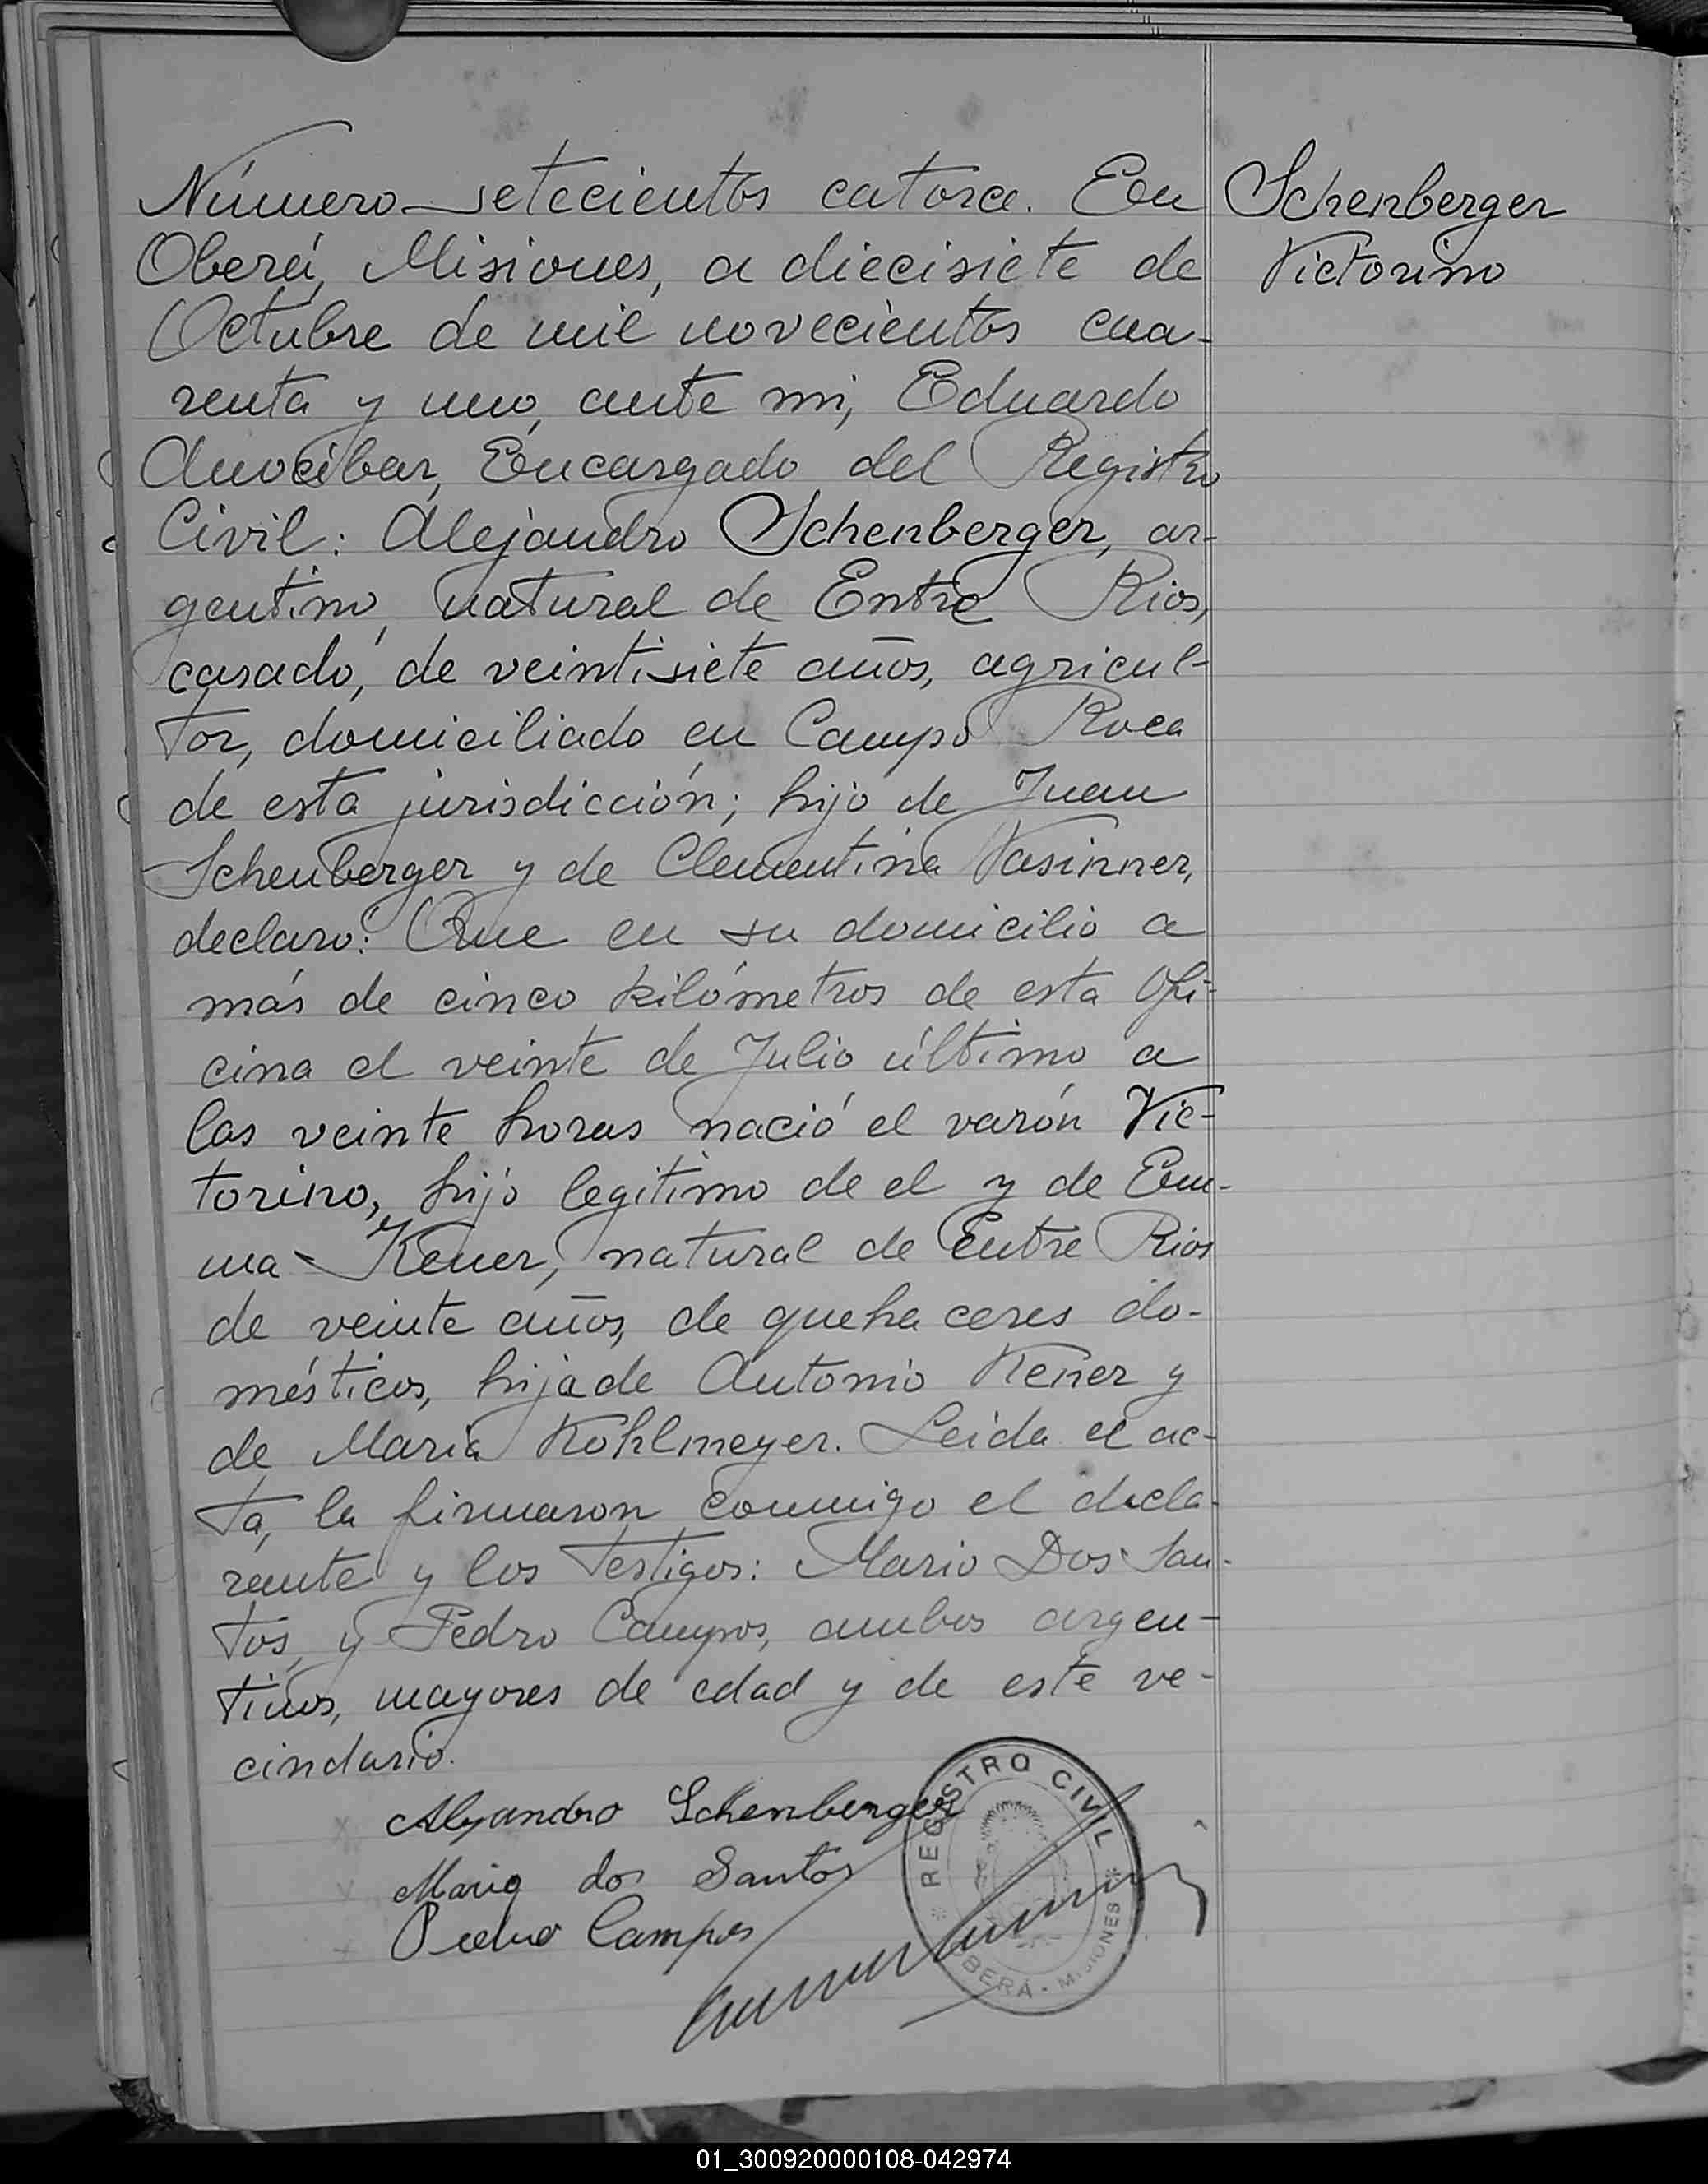 Número setecientos catorce. En
Oberá, Misiones, a diecisiete de
Octubre de mil novecientos cua-
renta y uno, ante mi, Eduardo
Anocibar, Encargado del Registro
Civil: Alejandro Schenberger, ar-
gentino, natural de Entre Rios,
casado, de veintisiete años, agricul-
tor, domiciliado en Campo Roca
de esta jurisdicción; hijo de Juan
Schenberger y de Clementina Vasinner,
declaro: Que en su domicilio a
más de cinco kilómetros de esta Ofi-
cina el veinte de Julio último a
las veinte horas nació el varón Vic-
torino, hijo legitimo de el y de Em-
ma Kener, natural de Entre Rios
de veinte años, de quehaceres do-
mésticos, hija de Antonio Kener y
de Maria Kohlmeyer. Leida el ac-
ta, la firmaron conmigo el decla-
rante y los testigos: Mario Dos San-
tos, y Pedro Campos, ambos argen-
tinos, mayores de edad y de este ve-
cindario.
Schenberger
Victorino
Alejandro Schenberger
Mario dos Santos
Pedro Campos
REGISTRO CIVIL
OBERÁ - MISIONES
01_300920000108-042974